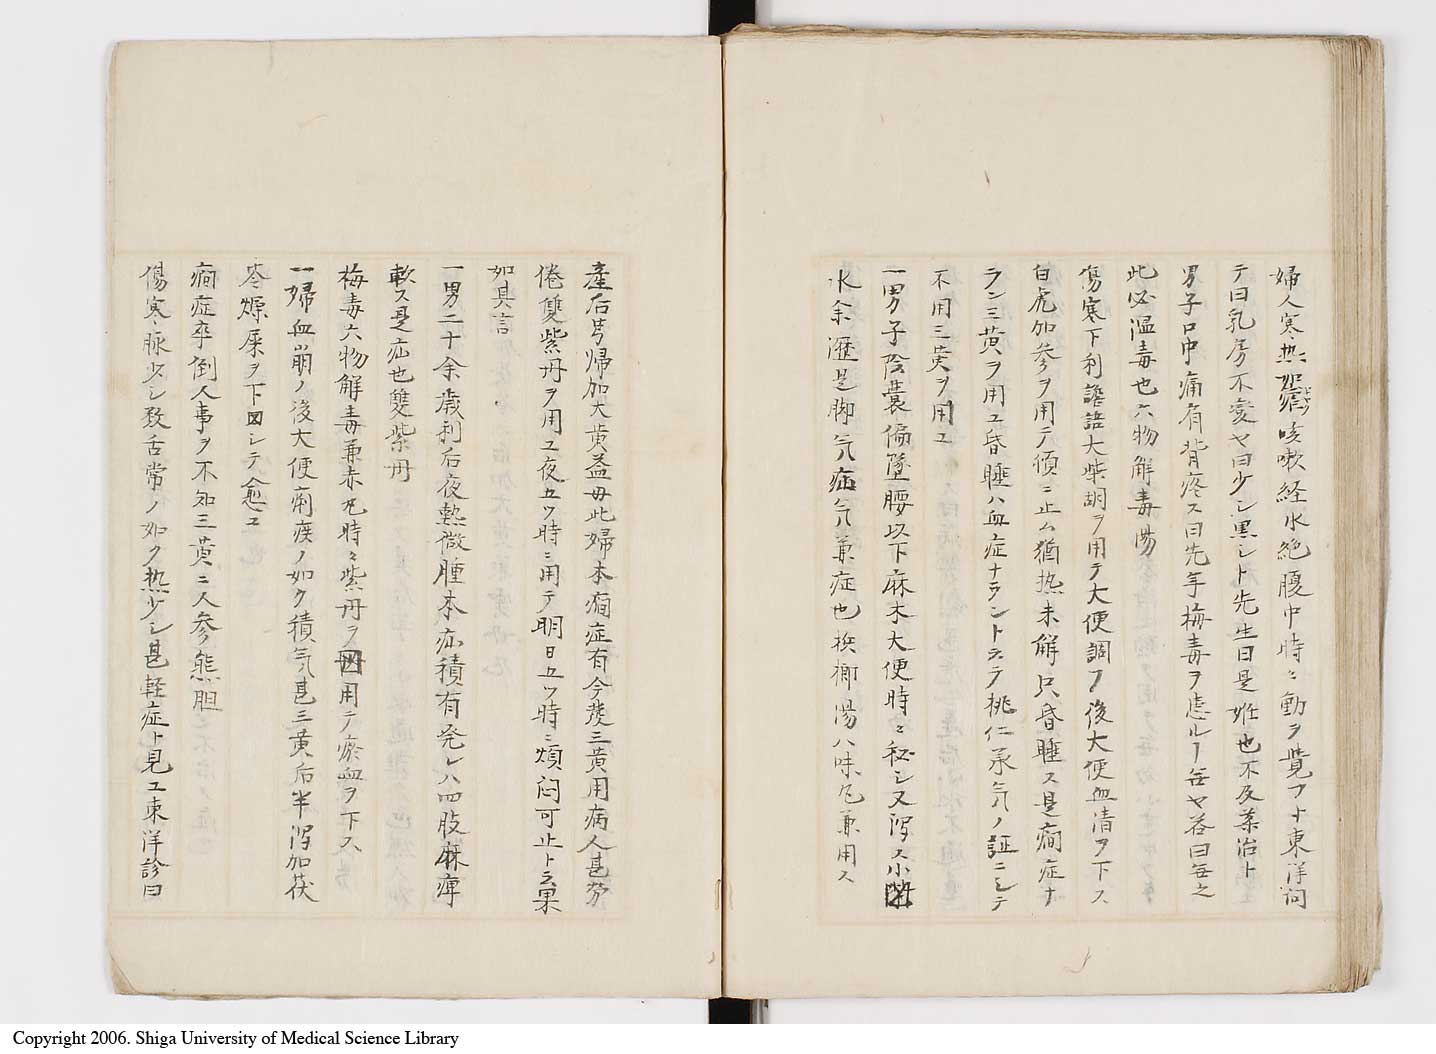 婦人寒热如瘧咳嗽経水絶腹中時々動ヲ覺フト東洋詞
テ曰乳房不変ヤ曰少シ黒シト先生曰是姙也不及薬治ト
男子口中痛有背疼ス曰先年梅毒ヲ患ルヿ無ヤ答曰無之
此必温毒也六物解毒湯
傷寒下利譫語大柴胡ヲ用テ大便調フ後大便血清ヲ下ス
白虎加参ヲ用テ傾ニ止ム猶热未解只昏睡ス是癇症ナ
ラン三黄ヲ用ユ昏睡ハ血症ナラントミテ桃仁承気ノ証ニシテ
不用三黄ヲ用ユ
一男子陰嚢偏墜腰以下麻木大便時々秘シ又瀉ス小
水余瀝是脚気疝気兼症也梹榔湯八味丸兼用ス
産后芎帰加大黄益母此婦本癇症有今發三黄用病人甚労
倦雙紫丹ヲ用ユ夜五ツ時ニ用テ明日五ツ時ニ煩悶可止ト云果
如其言
一男二十余歳利后夜熱微腫本疝積有発レハ四肢麻痺
軟ス是疝也雙紫丹
梅毒六物解毒兼赤丸時々紫丹ヲ用テ瘀血ヲ下ス
一婦血崩ノ後大便痢疾ノ如ク積気甚三黄后半瀉加茯
苓燥屎ヲ下図シテ愈ユ
癇症卒倒人事ヲ不知三黄ニ人参熊胆
傷寒脉少シ数舌常ノ如ク热少シ甚軽症ト見ユ東洋診曰
Copyright 2006. Shiga University of Medical Science Library